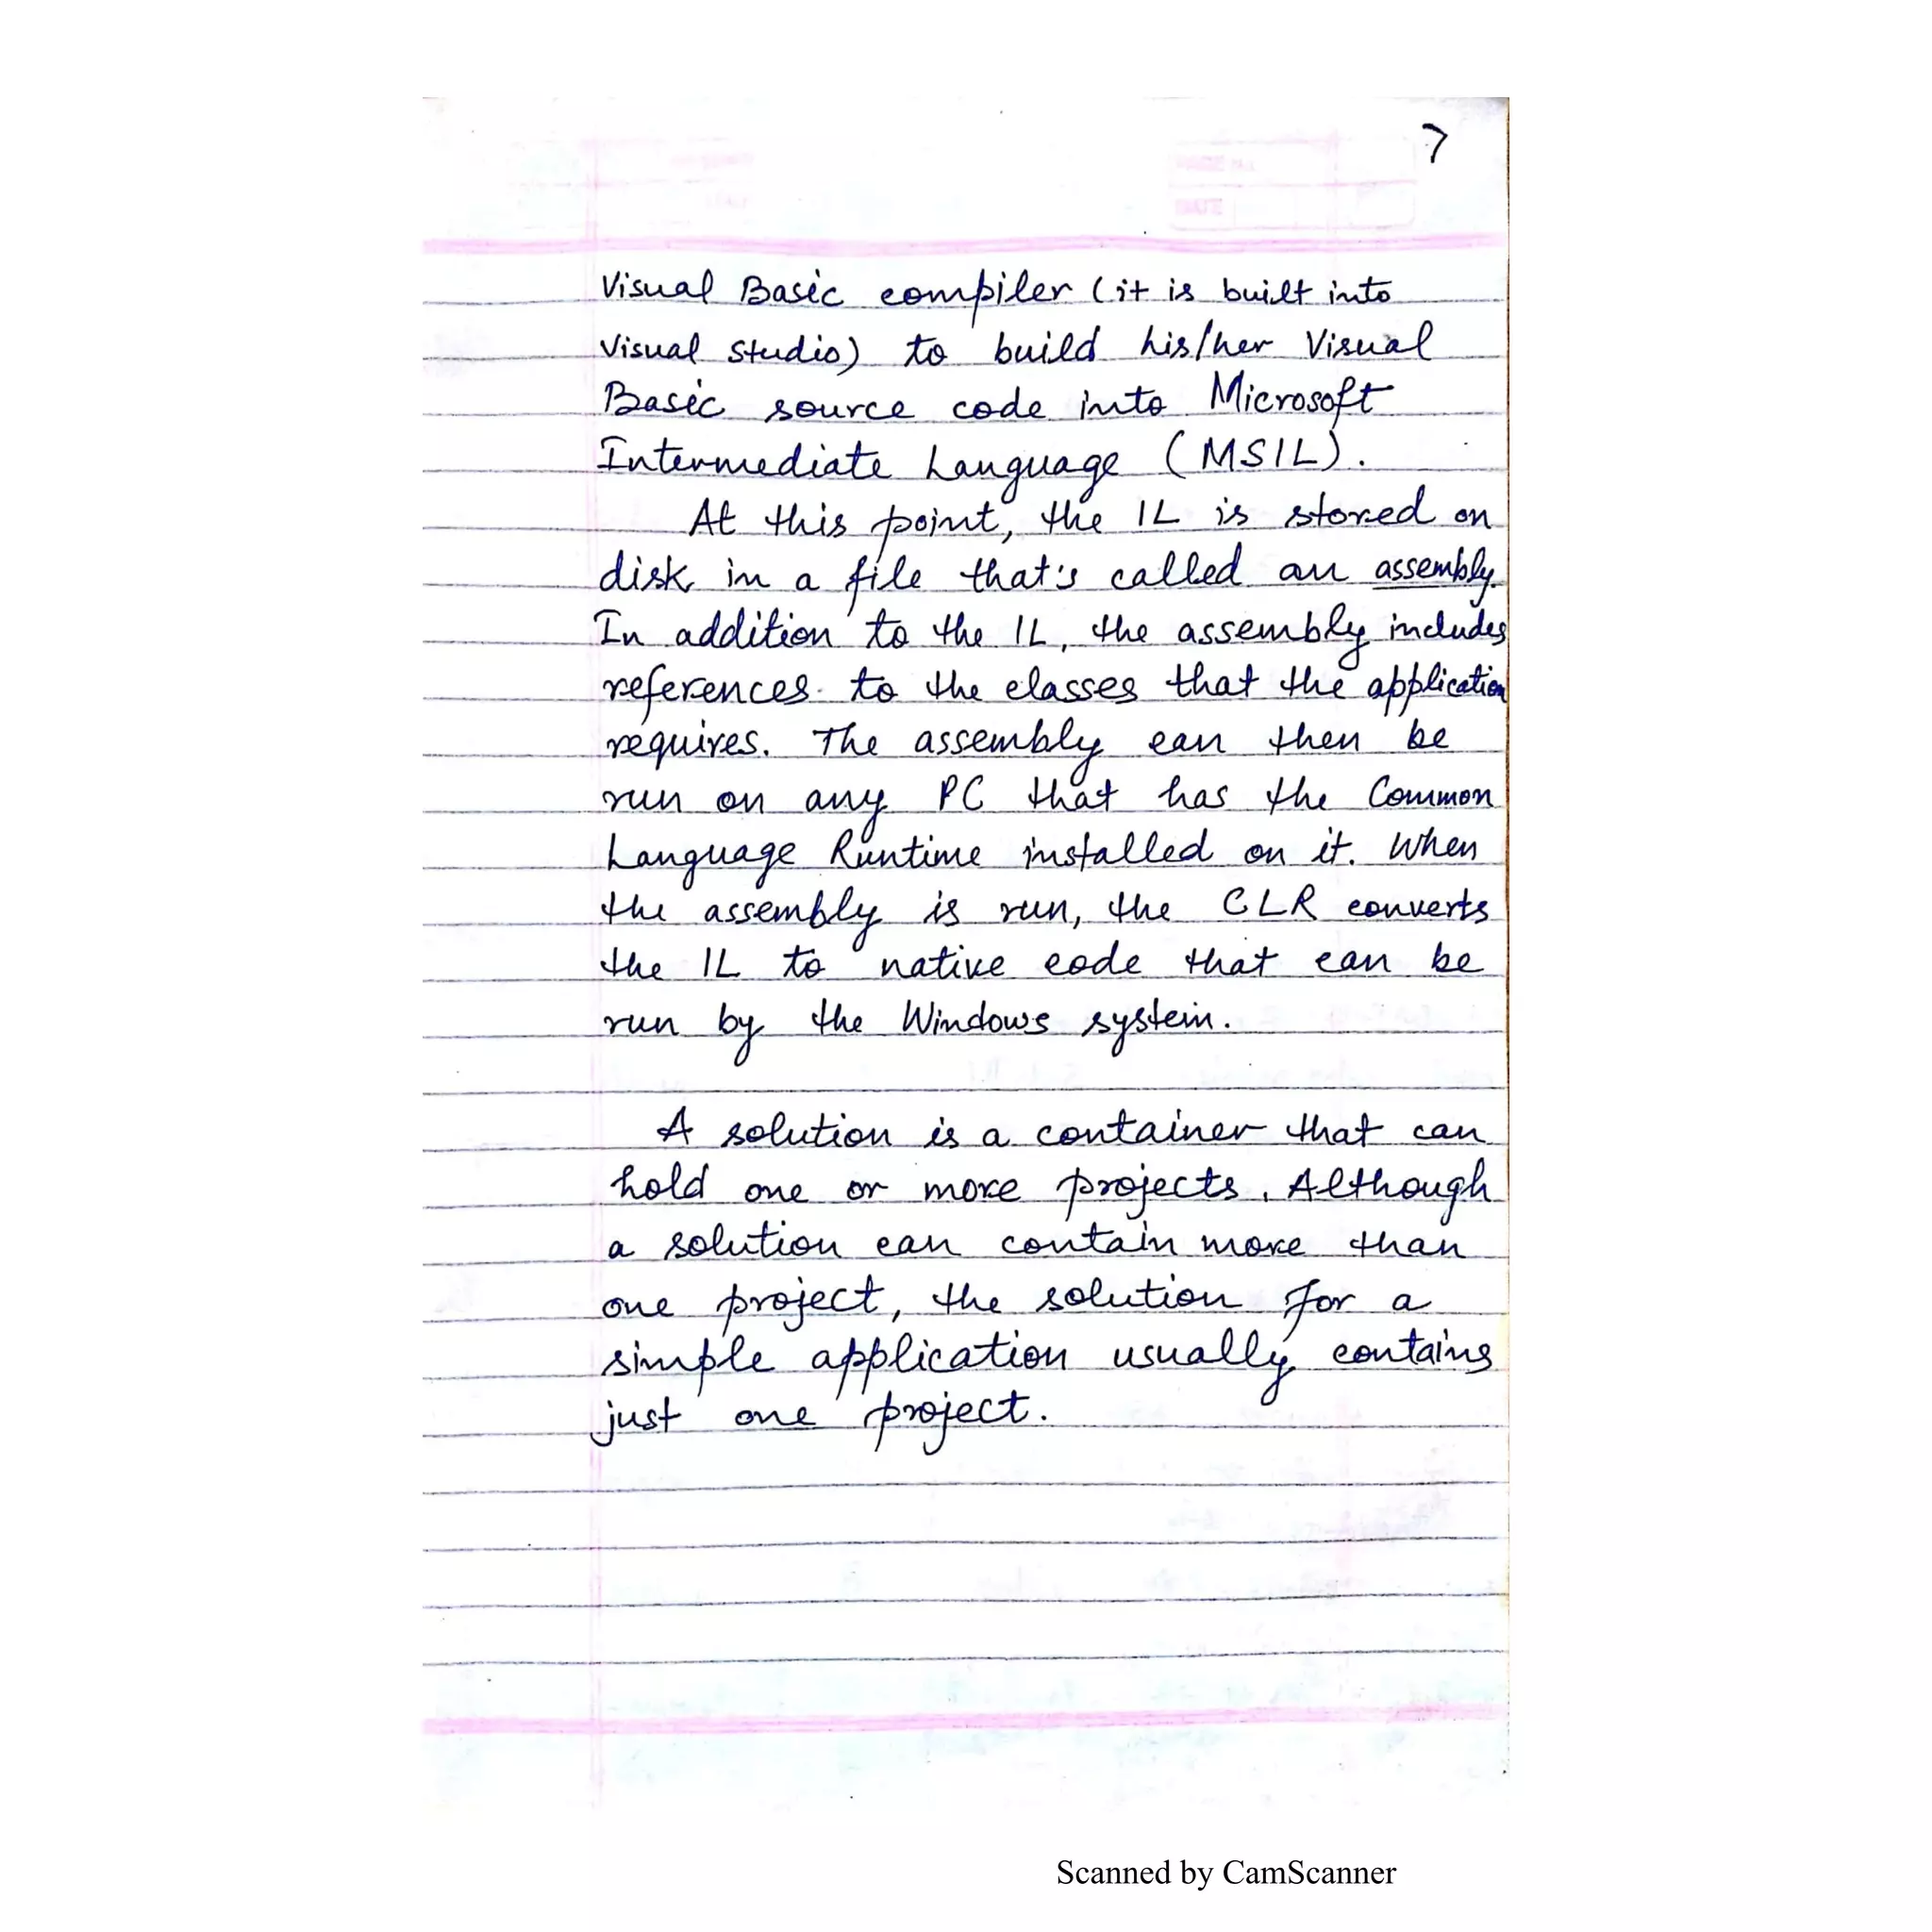 7
Visual Basic compiler (it is built into
Visual Studio) to build his/her Visual
Basic source code into Microsoft
Intermediate Language (MSIL).
At this point, the IL is stored on
disk in a file that's called an assembly.
In addition to the IL, the assembly includes
references to the classes that the application
requires. The assembly can then be
run on any PC that has the Common
Language Runtime installed on it. When
the assembly is run, the CLR converts
the IL to native code that can be
run by the Windows system.
A solution is a container that can
hold one or more projects. Although
a solution can contain more than
one project, the solution for a
simple application usually contains
just one project.
Scanned by CamScanner